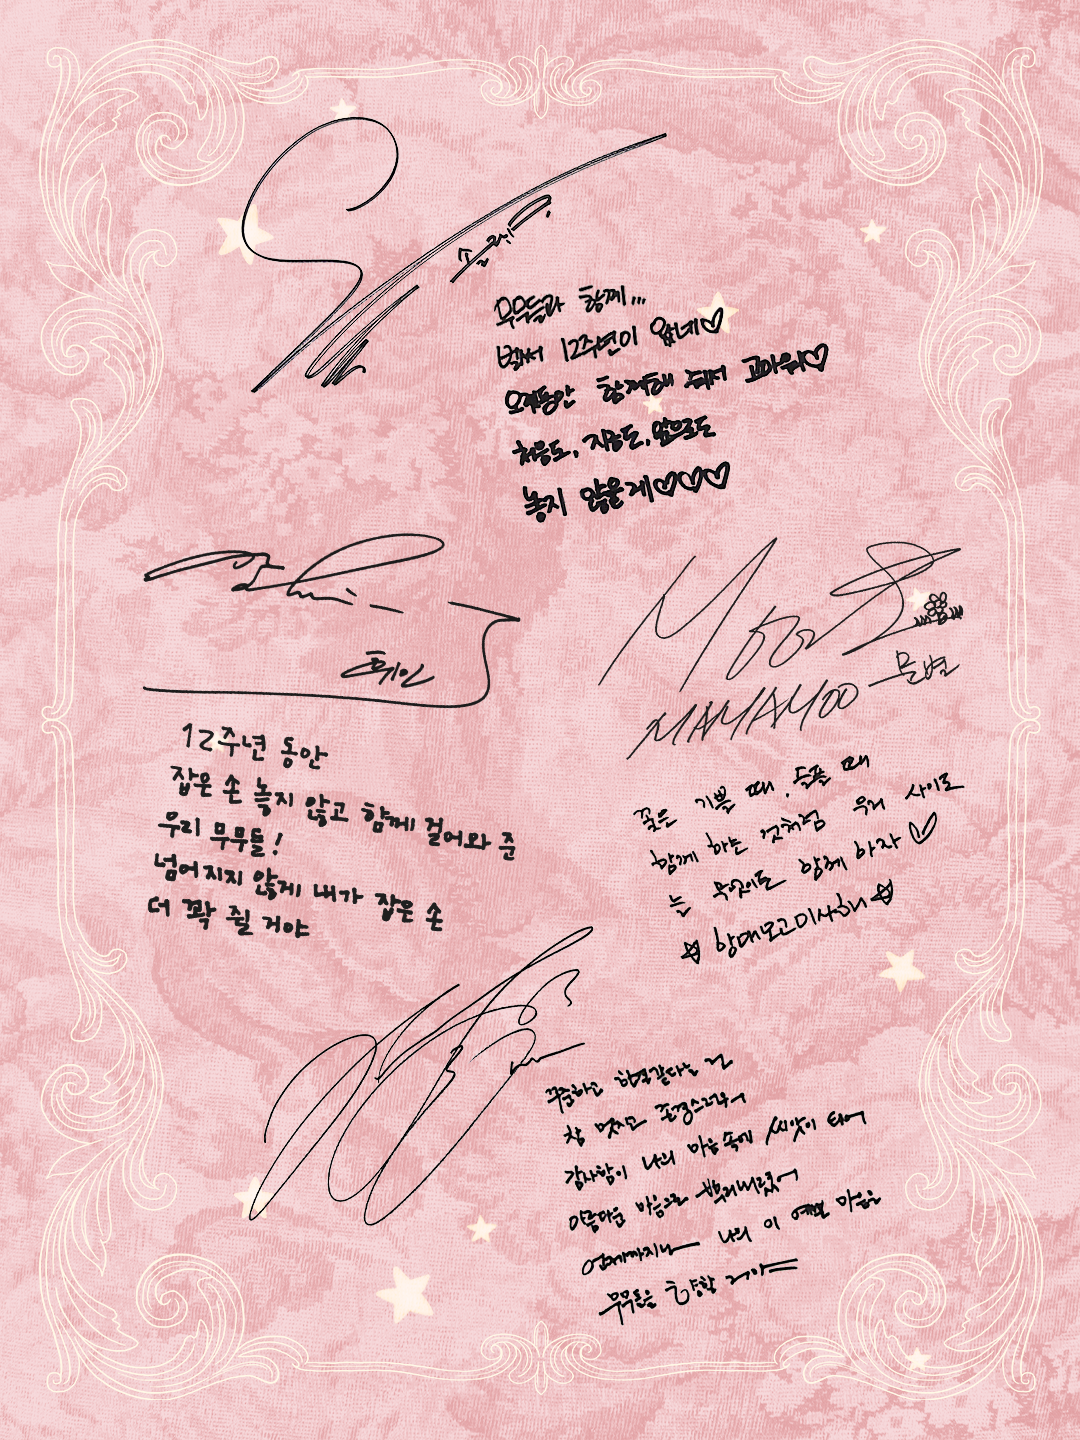 솔라!
무무들과 함께...
벌써 12주년이 왔네♡
오랫동안 함께해 줘서 고마워♡
처음도, 지금도, 앞으로도
놓지 않을게♡♡♡
휘인
12주년 동안
잡은 손 놓지 않고 함께 걸어와 준
우리 무무들!
넘어지지 않게 내가 잡은 손
더 꽉 쥘 거야
Moon
MAMAMOO 문별
꽃은 기쁠 때, 슬플 때
함께 하는 것처럼 우리 사이로
는 무엇이든 함께 하자♡
☆ 항대모고미사하니☆
꾸준하고 한결같다는 건
참 멋지고 존경스러워
감사함이 나의 마음속에 씨앗이 되어
아름다운 마음으로 뿌리내렸어
언제까지나 나의 이 예쁜 마음은
무무들을 향할 거야